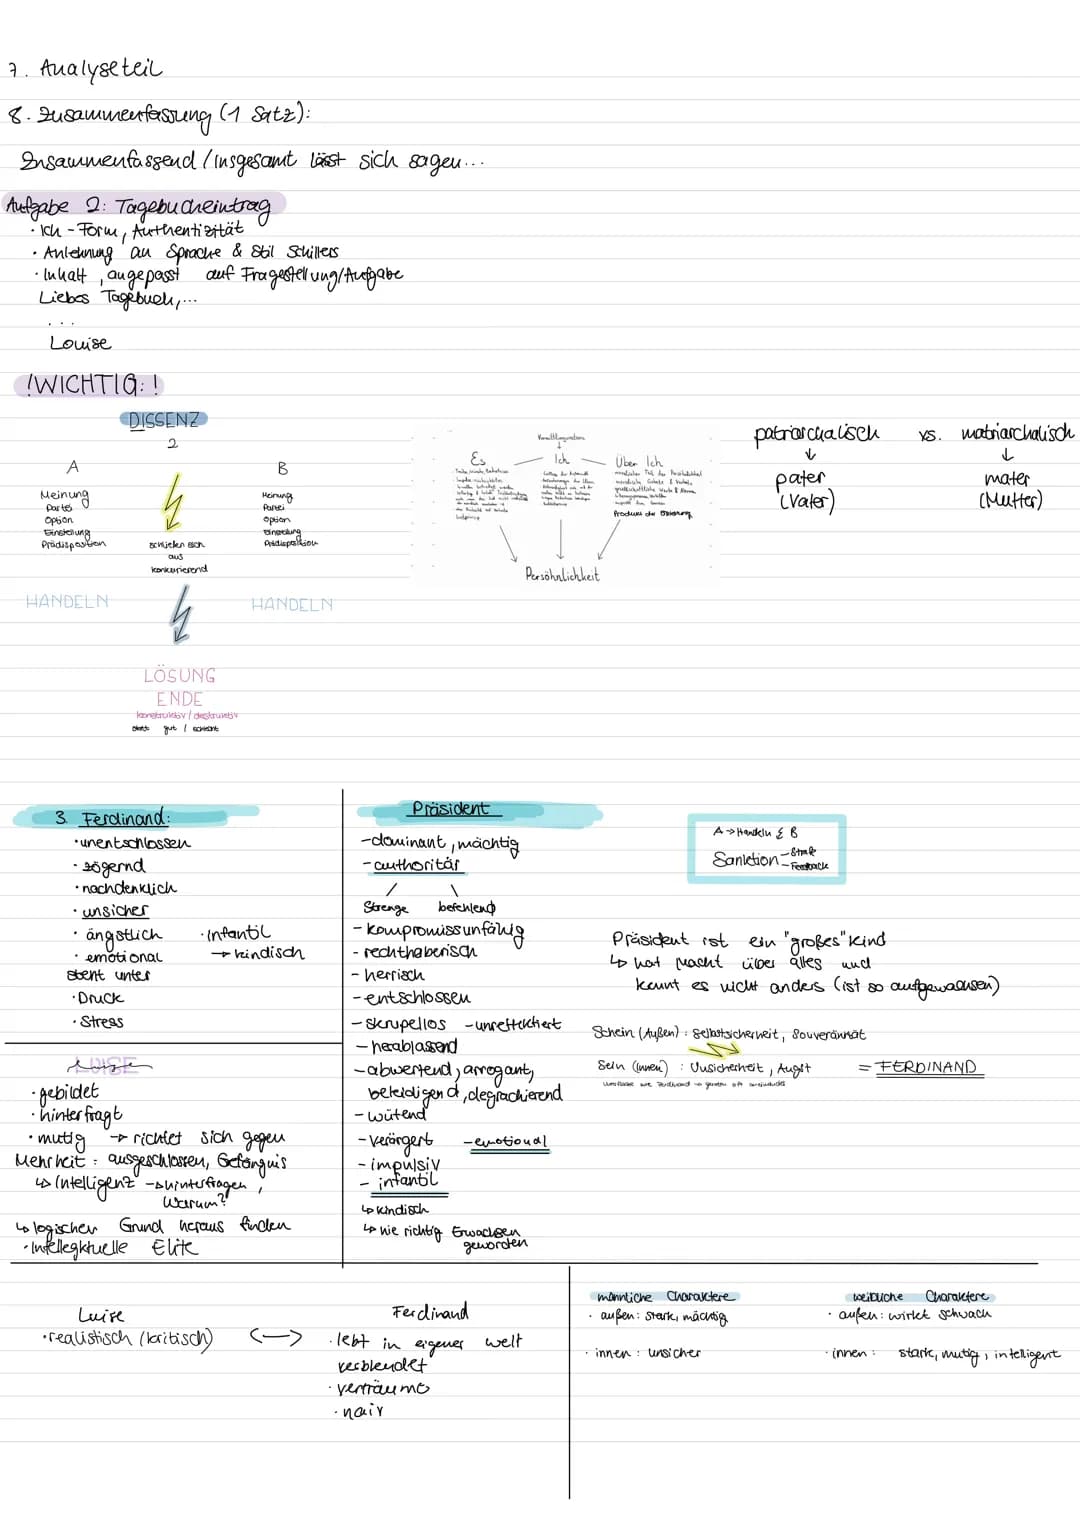 7. Analyseteil
8. Zusammenfassung (1 Satz):
Zusammenfassend / insgesamt lässt sich sagen...
Aufgabe 2: Tagebucheintrag
· Ich - Form, Authentizität
· Anlehnung an Sprache & Stil Schillers
· Inhalt, angepasst auf Fragestellung/Aufgabe
Liebes Tagebuch,...
...
Louise
!WICHTIG: !
DISSENZ
2
A
B
Meinung
Partei
Option
Einstellung
Prädisposition
schließen sich
aus
konkurierend
Meinung
Partei
Option
Einstellung
Prädisposition
HANDELN
HANDELN
LÖSUNG
ENDE
konstruktiv / destruktiv
gut / schlecht
Es
Ich
Über Ich
Produkt der Erziehung
Persöhnlichkeit
patriarchalisch vs. matriarchalisch
pater
(Vater)
mater
(Mutter)
3. Ferdinand:
· unentschlossen
· zögernd
· nachdenklich
· unsicher
· ängstlich · infantil
· emotional → kindisch
steht unter
· Druck
· Stress
LUISE
· gebildet
· hinterfragt
· mutig → richtet sich gegen
Mehrheit: ausgeschlossen, Gefängnis
↳ Intelligenz → hinterfragen,
Warum?
↳ logischen Grund heraus finden
· Intellegktuelle Elite
Präsident
- dominant, mächtig
- authoritär
Strenge befehlend
- kompromissunfähig
- rechthaberisch
- herrisch
- entschlossen
- skrupellos - unreflektiert
- herablassend
- abwertend, arrogant,
beleidigend, degradierend
- wütend
- verärgert - emotional
- impulsiv
- infantil
↳ kindisch
↳ nie richtig Erwachsen
geworden
A → Handeln B
Sanktion - Strafe
- Feedback
Präsident ist ein "großes" Kind
↳ hat Macht über alles und
kennt es nicht anders (ist so aufgewachsen)
Schein (Außen): Selbstsicherheit, Souveränität
Sein (innen): Unsicherheit, Angst = FERDINAND
Luise
· realistisch (kritisch) <->
Ferdinand
· lebt in eigener welt
verblendet
· verträumt
· naiv
männliche Charaktere
· außen: stark, mächtig
· innen: unsicher
weibliche Charaktere
· außen: wirkt schwach
· innen: stark, mutig, intelligent